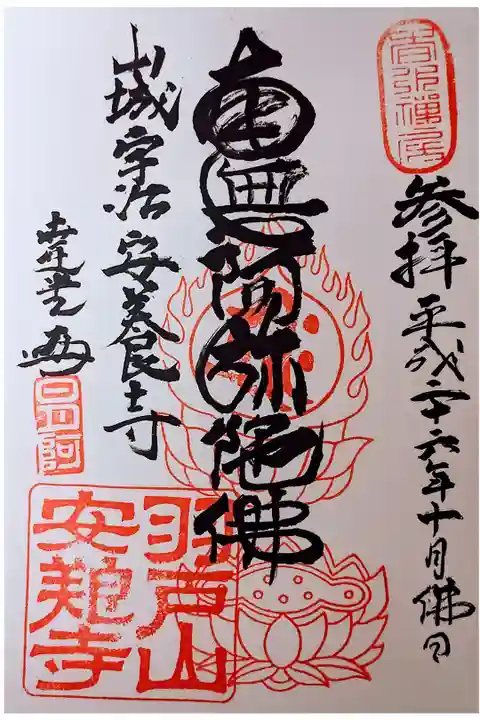 参拝 平成二十六年十月佛日
南無阿弥陀佛
山城宇治 安養寺
羽戸山
安養寺